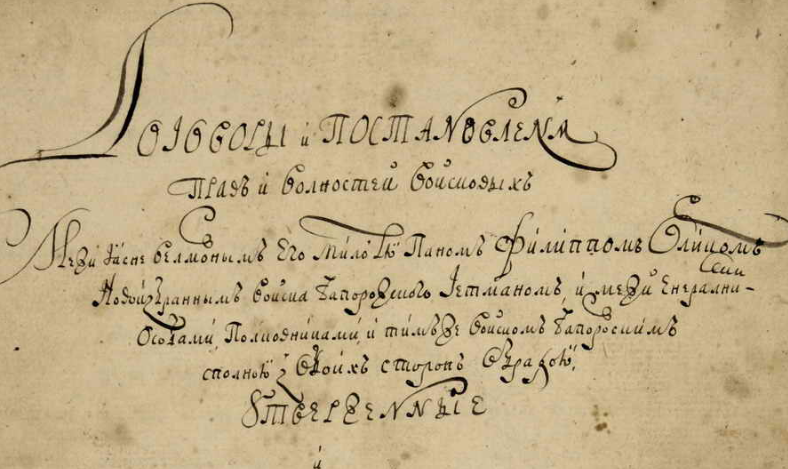 Договоры и ПОСТАНОВЛЕНѦ
Правъ и волностей войсковыхъ
Межи Ясне велможнымъ Его милостю Паномъ Филиппомъ Орликомъ
Новоизбраннымъ войска Запорожского Гетманомъ, и межи Енералними
Особами, Полковниками, и тимъже войскомъ Запорозскимъ
сполною з обоихъ сторонъ обрадою,
Ꙋтверженные
и